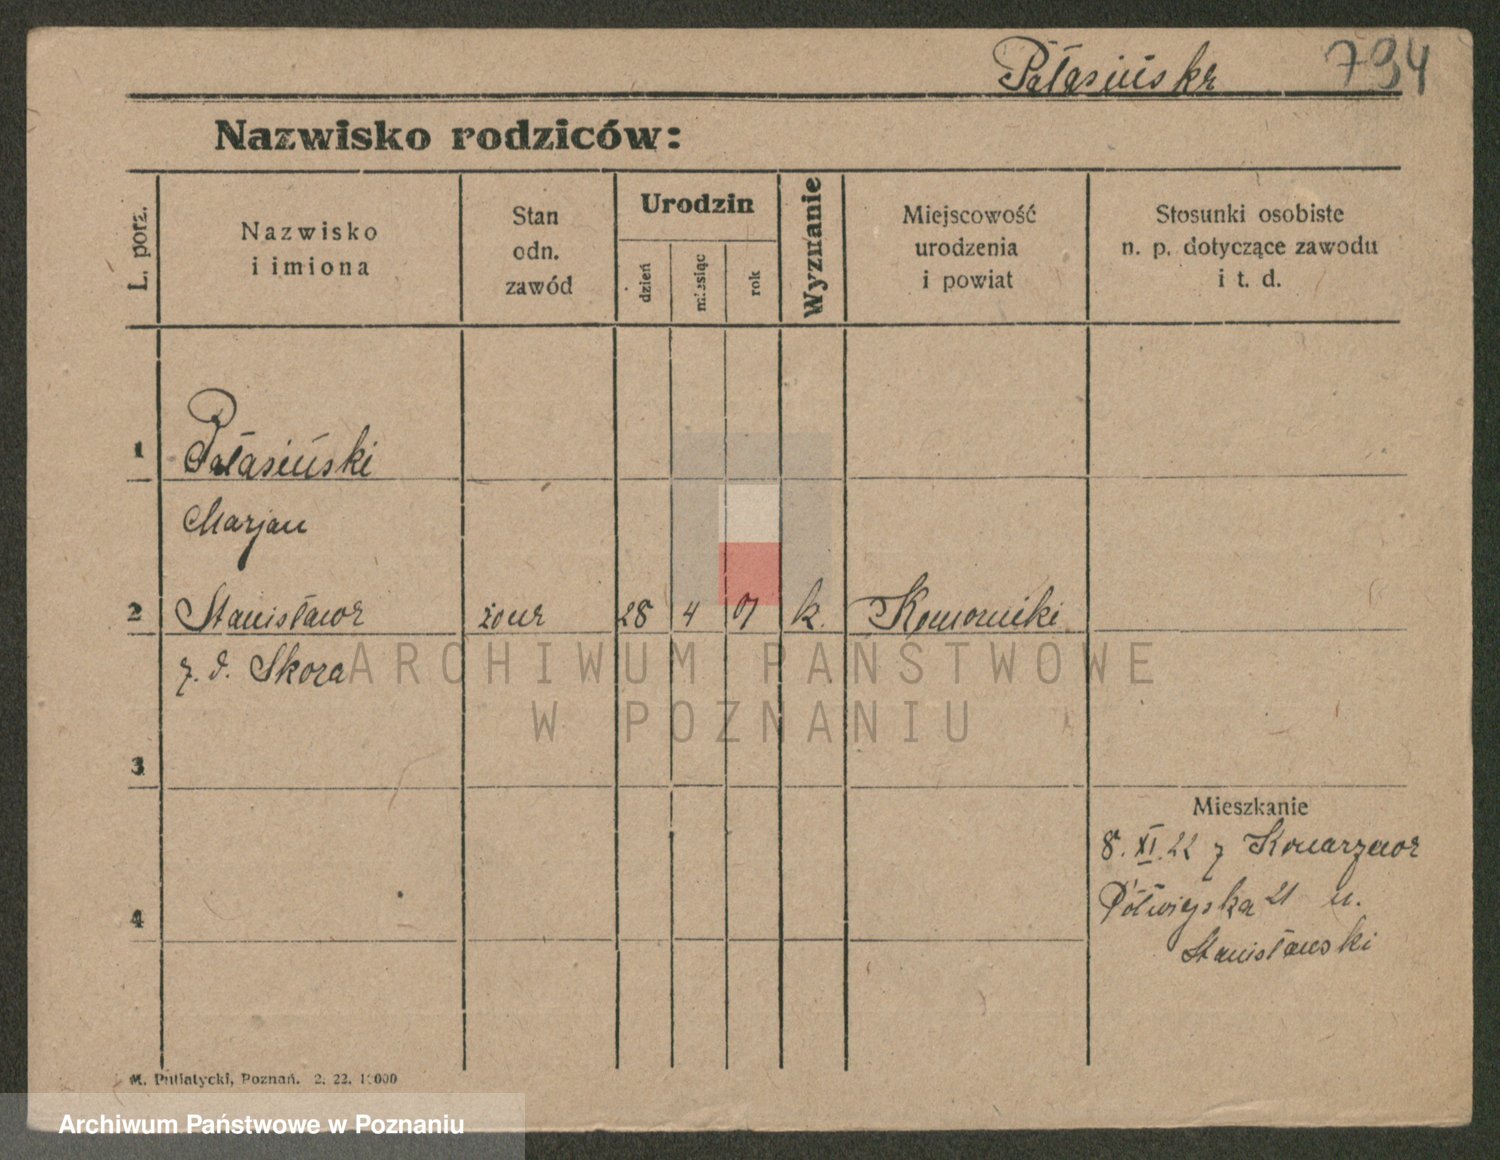 Pałasiński 794
Nazwisko rodziców:
L. porz.
Nazwisko
i imiona
Stan
odn.
zawód
Urodzin
dzień
miesiąc
rok
Wyznanie
Miejscowość
urodzenia
i powiat
Stosunki osobiste
n. p. dotyczące zawodu
i t. d.
1 Pałasiński
Marjan
2 Stanisława żona 28 4 01 k. Komorniki
z. d. Skora
ARCHIWUM PAŃSTWOWE
W POZNANIU
3
Mieszkanie
8. XI. 22 z Konarzewa
4 Półwiejska 21 u.
Stanisławski
M. Putiatycki, Poznań. 2. 22. 1000
Archiwum Państwowe w Poznaniu